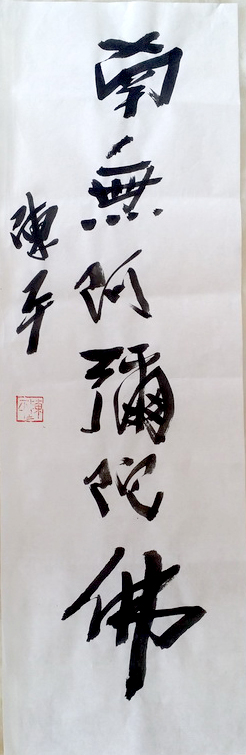 南無阿彌陀佛
陳平